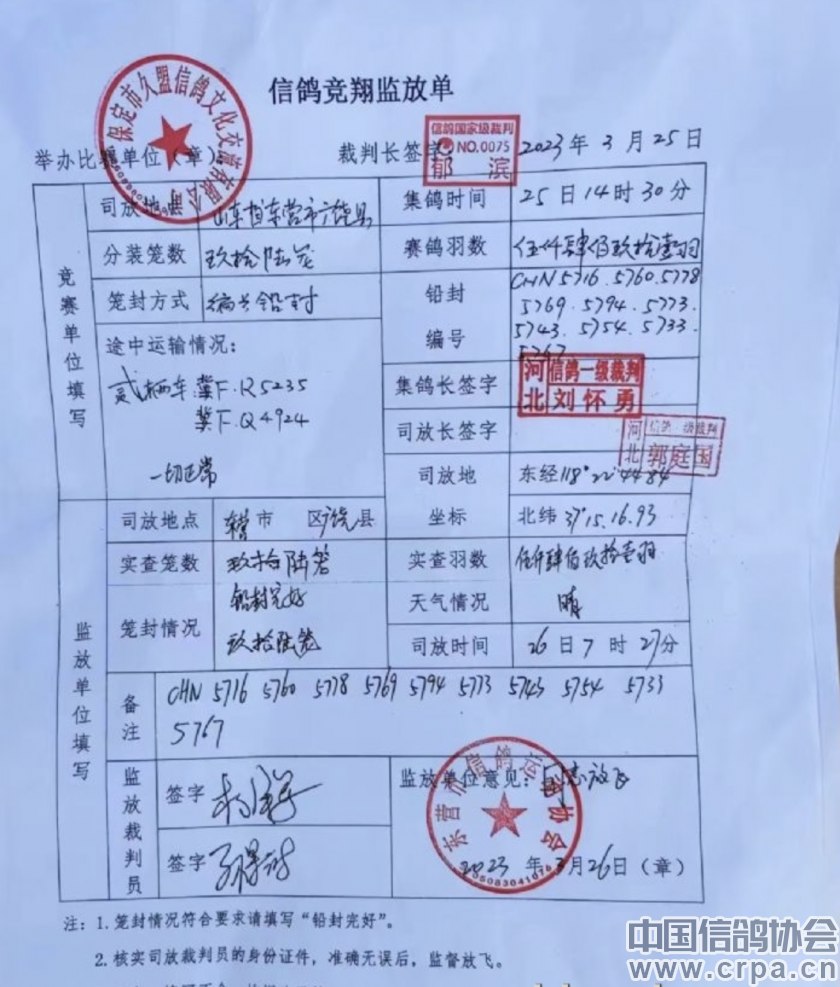 信鸽竞翔监放单
保定市久盟信鸽文化交流有限公司
举办比赛单位（章）
裁判长签字
信鸽国家级裁判
NO.0075
郁滨
2023年3月25日
竞赛单位填写
司放地点 山东省东营市广饶县
集鸽时间 25日14时30分
分装笼数 玖拾陆笼
赛鸽羽数 伍仟肆佰玖拾壹羽
笼封方式 铅封
铅封编号
CHN 5716.5760.5778
5769.5794.5773.
5743.5754.5733.
5767
途中运输情况：
贰辆车 冀F.R5235
冀F.Q4924
一切正常
集鸽长签字
河北 信鸽一级裁判 刘怀勇
司放长签字
河北 信鸽一级裁判 郭庭国
司放地坐标
东经118°22.44.84
北纬37°15.16.93
监放单位填写
司放地点 东营市 区广饶县
实查笼数 玖拾陆笼
实查羽数 伍仟肆佰玖拾壹羽
笼封情况
铅封完好
玖拾陆笼
天气情况 晴
司放时间 26日7时27分
备注
CHN 5716 5760 5778 5769 5794 5773 5743 5754 5733
5767
监放裁判员
签字
签字
监放单位意见：同意放飞
东营市信鸽运动协会
2023年3月26日（章）
注：1.笼封情况符合要求请填写“铅封完好”。
2.核实司放裁判员的身份证件，准确无误后，监督放飞。
中国信鸽协会
www.crpa.cn